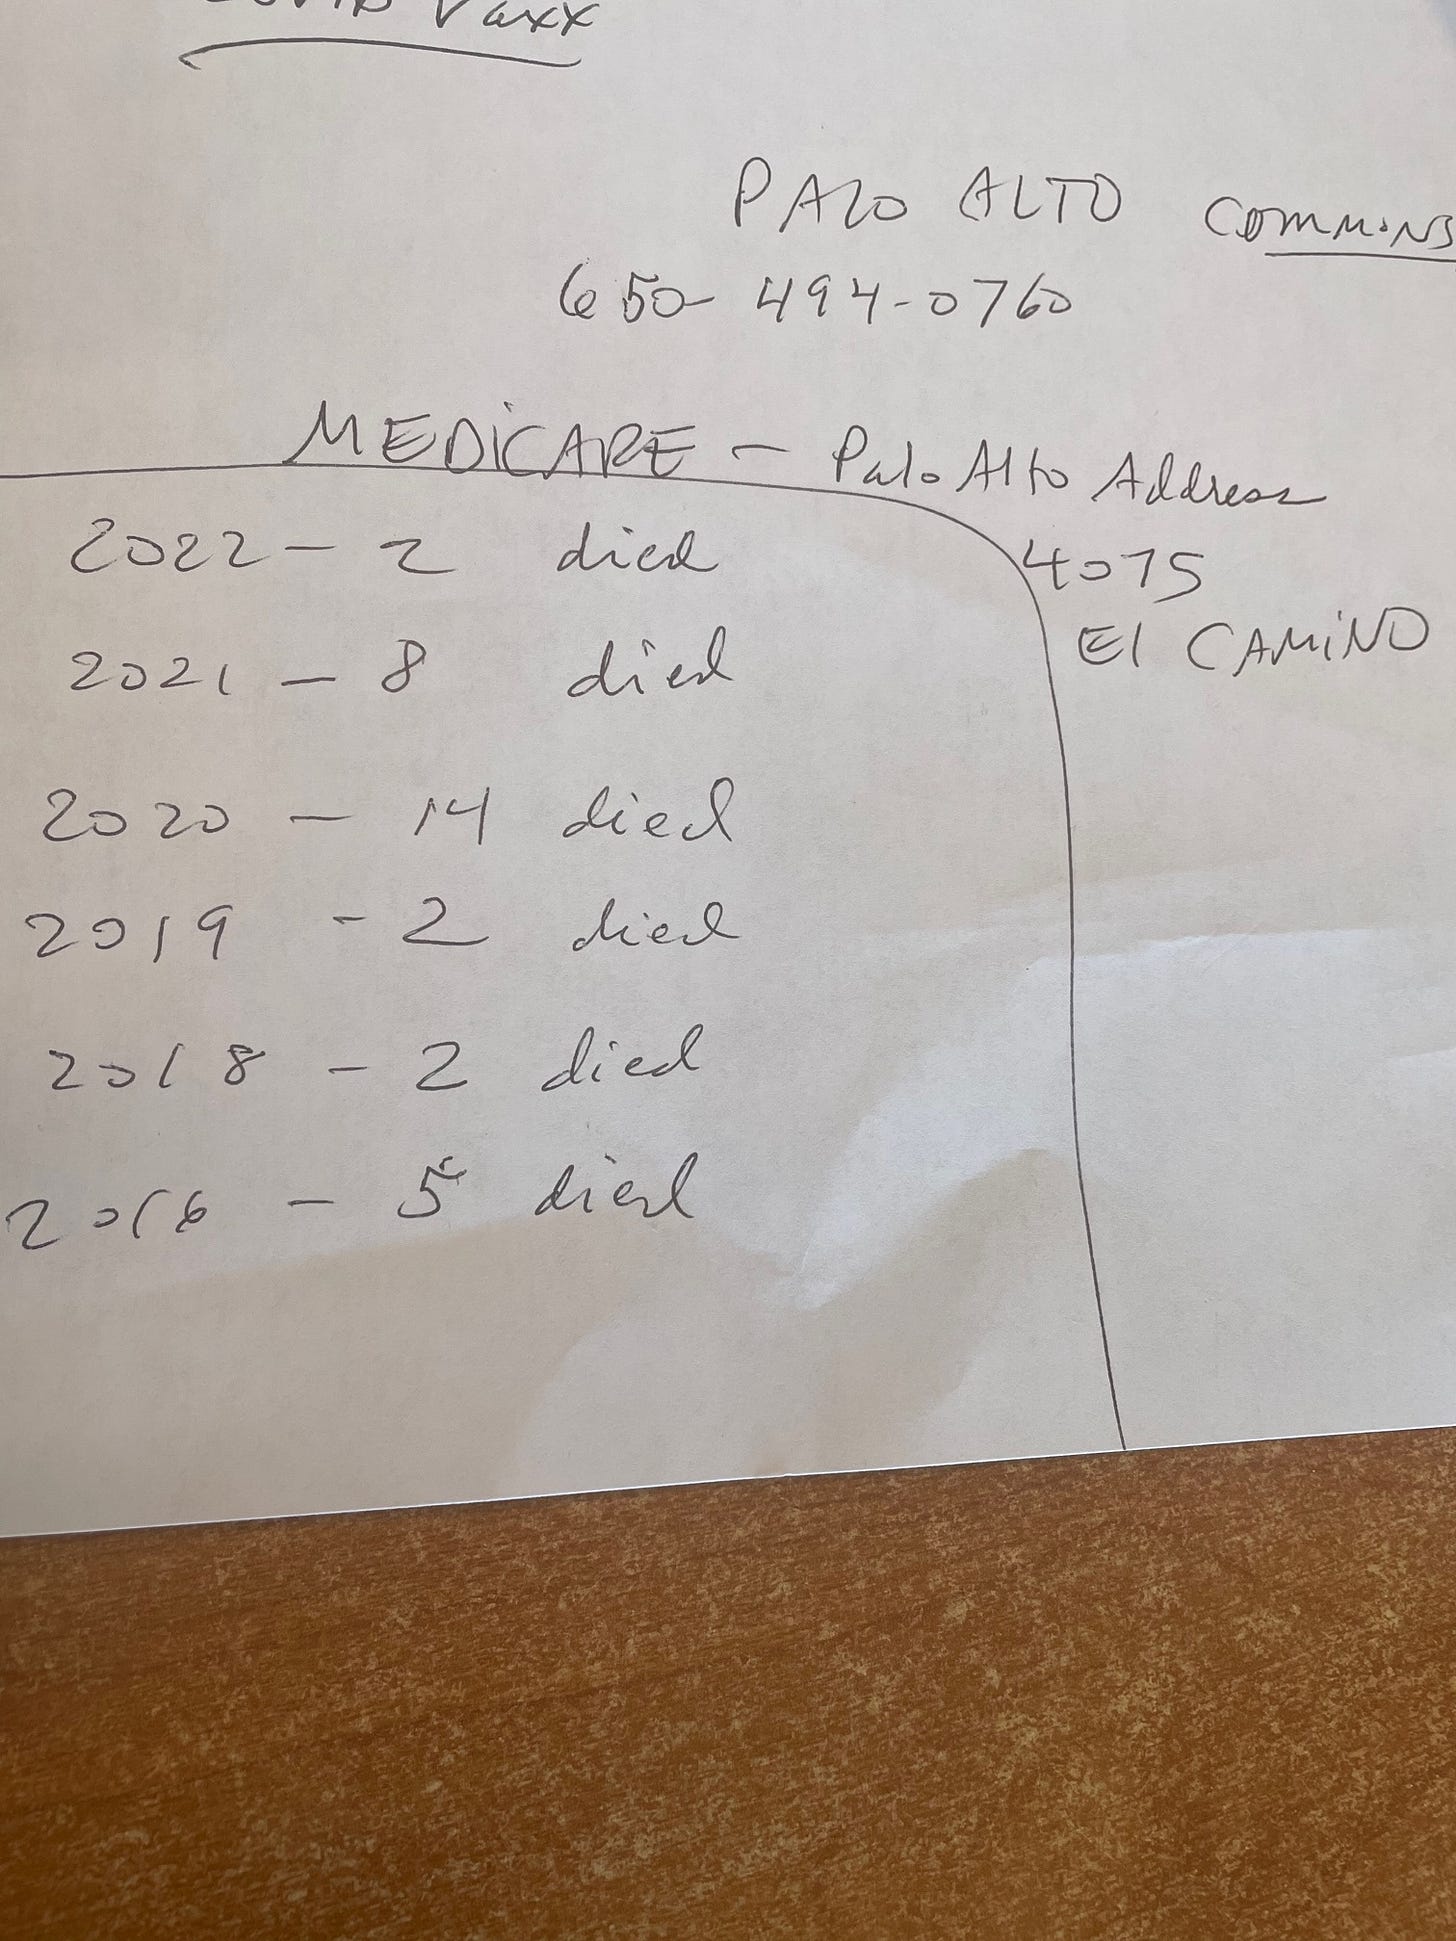 Vaxx
PALO ALTO COMMONS
650-494-0760
MEDICARE - Palo Alto Address
4075
El CAMINO
2022 - 2 died
2021 - 8 died
2020 - 14 died
2019 - 2 died
2018 - 2 died
2016 - 5 died